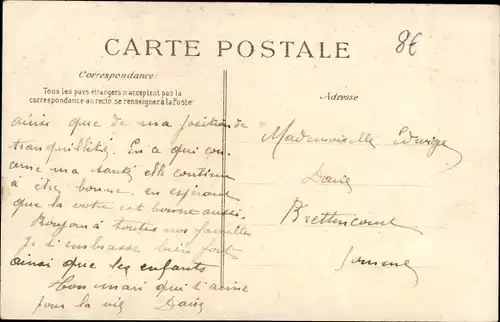 CARTE POSTALE
8€
Correspondance:
Tous les pays étrangers n'acceptent pas la
correspondance au recto, se renseigner à la Poste
Adresse
ainsi que de ma position de
tranquillité. En ce qui con
cerne ma santé elle continue
à être bonne. en espérant
que la votre est bonne aussi.
Bonjour à toutes nos famille
Je t'embrasse bien fort
ainsi que les enfants
Mon mari qui t'aime
pour la vie
Mademoiselle Edwige
Brettencourt
Somme